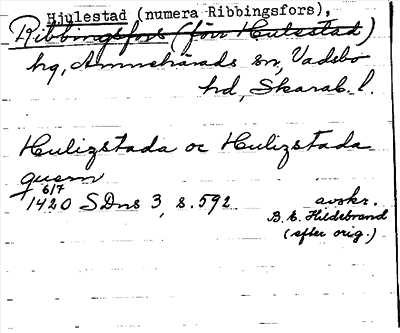 Hjulestad (numera Ribbingsfors),
Ribbingsfors (förr Hulestad)
hg, Amnehärads sn, Vadsbo
hd, Skarab. l.
Hulizstada oc Hulizstada
quern
6/7
1420 SDns 3, s. 592 avskr.
B. E. Hildebrand
(efter orig.)